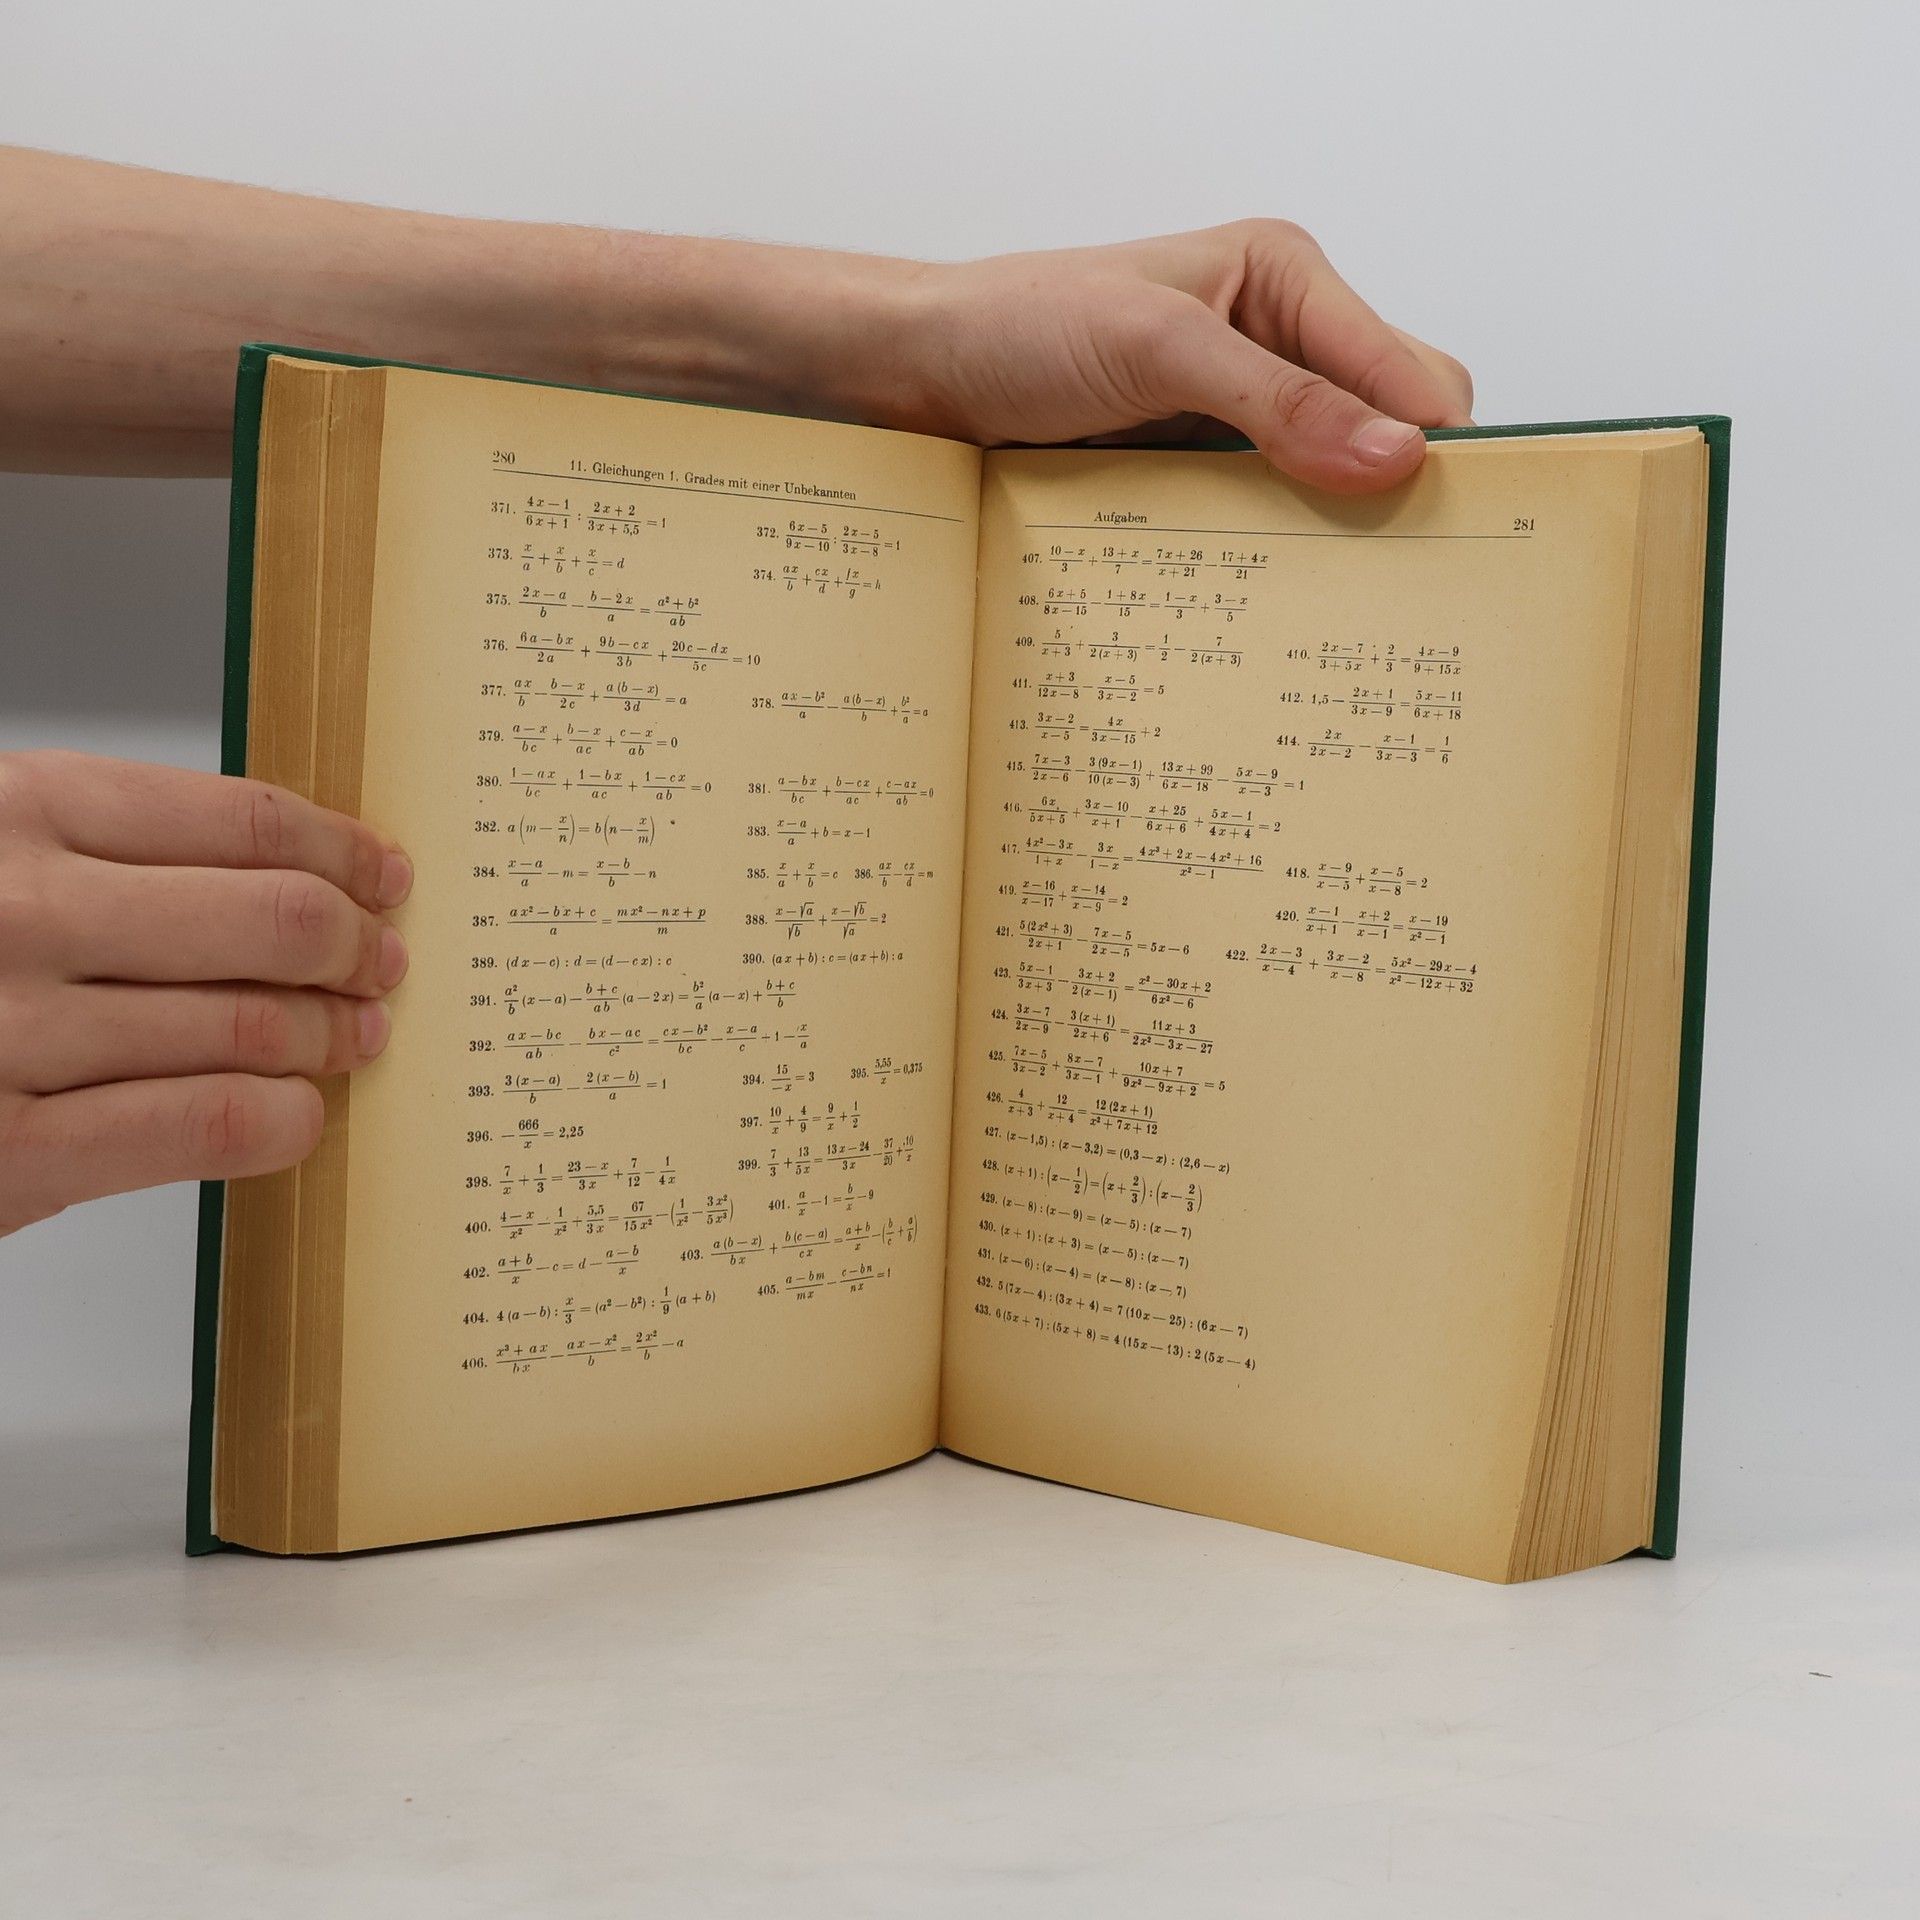 280 11. Gleichungen 1. Grades mit einer Unbekannten
371. (4x−1)/(6x+1) : (2x+2)/(3x+5,5) = 1 372. (6x−5)/(9x−10) : (2x−5)/(3x−8) = 1
373. x/a + x/b + x/c = d 374. ax/b + cx/d + fx/g = h
375. (2x−a)/b − (b−2x)/a = (a²+b²)/(ab)
376. (6a−bx)/(2a) + (9b−cx)/(3b) + (20c−dx)/(5c) = 10
377. ax/b − (b−x)/(2c) + a(b−x)/(3d) = a 378. (ax−b²)/a − a(b−x)/b + b²/a = a
379. (a−x)/(bc) + (b−x)/(ac) + (c−x)/(ab) = 0
380. (1−ax)/(bc) + (1−bx)/(ac) + (1−cx)/(ab) = 0 381. (a−bx)/(bc) + (b−cx)/(ac) + (c−ax)/(ab) = 0
382. a(m − x/n) = b(n − x/m) 383. (x−a)/a + b = x−1
384. (x−a)/a − m = (x−b)/b − n 385. x/a + x/b = c 386. ax/b − cx/d = m
387. (ax²−bx+c)/a = (mx²−nx+p)/m 388. (x−√a)/√b + (x−√b)/√a = 2
389. (dx−c) : d = (d−cx) : c 390. (ax+b) : c = (ax+b) : a
391. a²/b (x−a) − (b+c)/(ab) (a−2x) = b²/a (a−x) + (b+c)/b
392. (ax−bc)/(ab) − (bx−ac)/c² = (cx−b²)/(bc) − (x−a)/c + 1 − x/a
393. 3(x−a)/b − 2(x−b)/a = 1 394. 15/(−x) = 3 395. 5,55/x = 0,375
396. − 666/x = 2,25 397. 10/x + 4/9 = 9/x + 1/2
398. 7/x + 1/3 = (23−x)/(3x) + 7/12 − 1/(4x) 399. 7/3 + 13/(5x) = (13x−24)/(3x) − 37/20 + 10/x
400. (4−x)/x² − 1/x² + 5,5/(3x) = 67/(15x²) − (1/x² − 3x²/(5x³)) 401. a/x − 1 = b/x − 9
402. (a+b)/x − c = d − (a−b)/x 403. a(b−x)/(bx) + b(c−a)/(cx) = (a+b)/x − (b/c + a/b)
404. 4(a−b) : x/3 = (a²−b²) : 1/9 (a+b) 405. (a−bm)/(mx) − (c−bn)/(nx) = 1
406. (x³+ax)/(bx) − (ax−x²)/b = 2x²/b − a
Aufgaben 281
407. (10−x)/3 + (13+x)/7 = (7x+26)/(x+21) − (17+4x)/21
408. (6x+5)/(8x−15) − (1+8x)/15 = (1−x)/3 + (3−x)/5
409. 5/(x+3) + 3/(2(x+3)) = 1/2 − 7/(2(x+3)) 410. (2x−7)/(3+5x) + 2/3 = (4x−9)/(9+15x)
411. (x+3)/(12x−8) − (x−5)/(3x−2) = 5 412. 1,5 − (2x+1)/(3x−9) = (5x−11)/(6x+18)
413. (3x−2)/(x−5) = 4x/(3x−15) + 2 414. 2x/(2x−2) − (x−1)/(3x−3) = 1/6
415. (7x−3)/(2x−6) − 3(9x−1)/(10(x−3)) + (13x+99)/(6x−18) − (5x−9)/(x−3) = 1
416. 6x/(5x+5) + (3x−10)/(x+1) − (x+25)/(6x+6) + (5x−1)/(4x+4) = 2
417. (4x²−3x)/(1+x) − 3x/(1−x) = (4x³+2x−4x²+16)/(x²−1) 418. (x−9)/(x−5) + (x−5)/(x−8) = 2
419. (x−16)/(x−17) + (x−14)/(x−9) = 2 420. (x−1)/(x+1) − (x+2)/(x−1) = (x−19)/(x²−1)
421. 5(2x²+3)/(2x+1) − (7x−5)/(2x−5) = 5x−6 422. (2x−3)/(x−4) + (3x−2)/(x−8) = (5x²−29x−4)/(x²−12x+32)
423. (5x−1)/(3x+3) − (3x+2)/(2(x−1)) = (x²−30x+2)/(6x²−6)
424. (3x−7)/(2x−9) − 3(x+1)/(2x+6) = (11x+3)/(2x²−3x−27)
425. (7x−5)/(3x−2) + (8x−7)/(3x−1) + (10x+7)/(9x²−9x+2) = 5
426. 4/(x+3) + 12/(x+4) = 12(2x+1)/(x²+7x+12)
427. (x−1,5) : (x−3,2) = (0,3−x) : (2,6−x)
428. (x+1) : (x − 1/2) = (x + 2/3) : (x − 2/3)
429. (x−8) : (x−9) = (x−5) : (x−7)
430. (x+1) : (x+3) = (x−5) : (x−7)
431. (x−6) : (x−4) = (x−8) : (x−7)
432. 5(7x−4) : (3x+4) = 7(10x−25) : (6x−7)
433. 6(5x+7) : (5x+8) = 4(15x−13) : 2(5x−4)